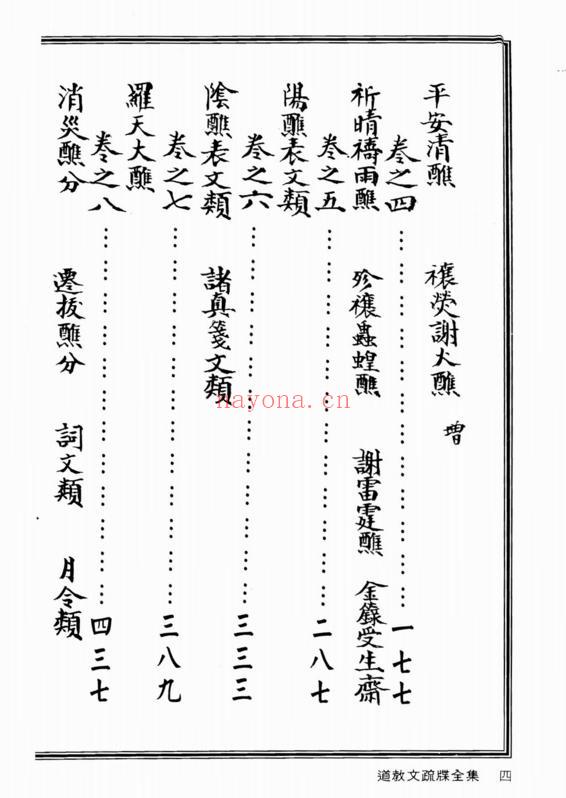 平安清醮　禳熒謝火醮　增
卷之四……………………一七七
祈晴禱雨醮　殄禳蟲蝗醮　謝雷霆醮　金籙受生齋
卷之五……………………二八七
陽醮表文類
卷之六……………………三三三
陰醮表文類　諸真箋文類
卷之七……………………三八九
羅天大醮
卷之八……………………四三七
消災醮分　遷拔醮分　詞文類　月令類
道教文疏牒全集　四
nayona.cn